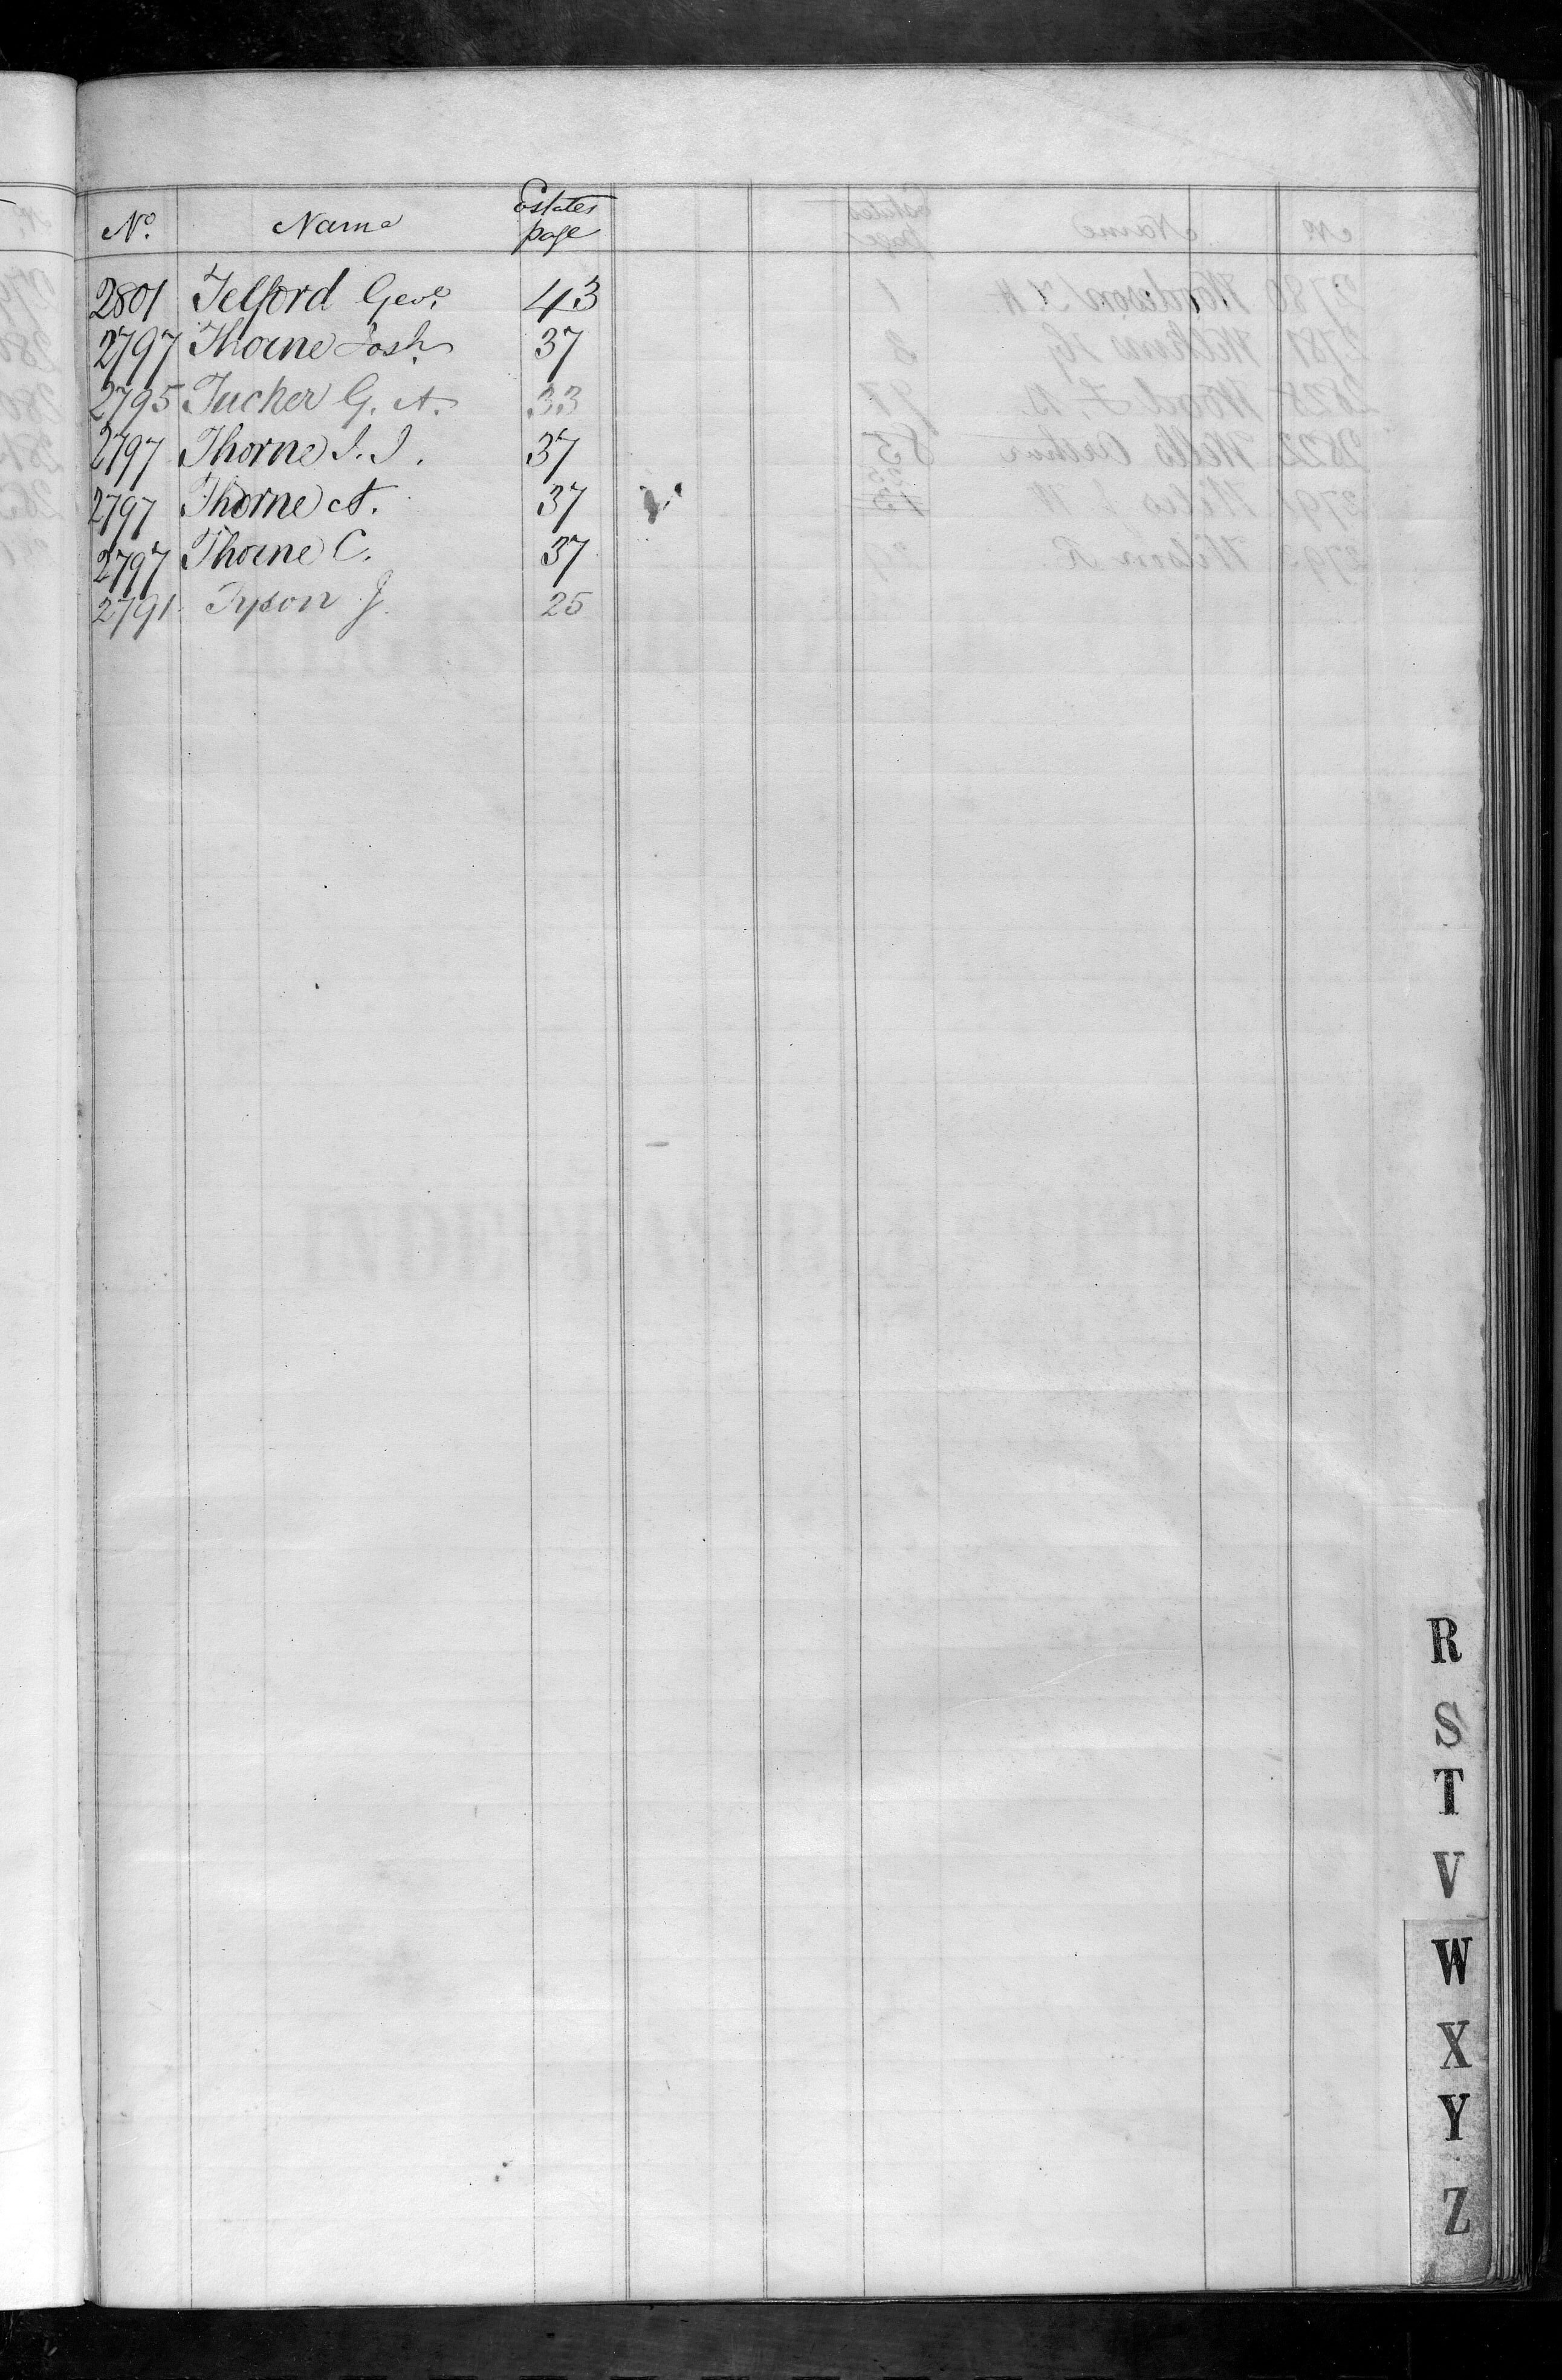 No. Name Estates page
2801 Telford Geo. 43
2797 Thorne Josh. 37
2795 Tucker G. A. 33
2797 Thorne J. J. 37
2797 Thorne A. 37
2797 Thorne C. 37
2791 Tyson J. 25
R
S
T
V
W
X
Y
Z